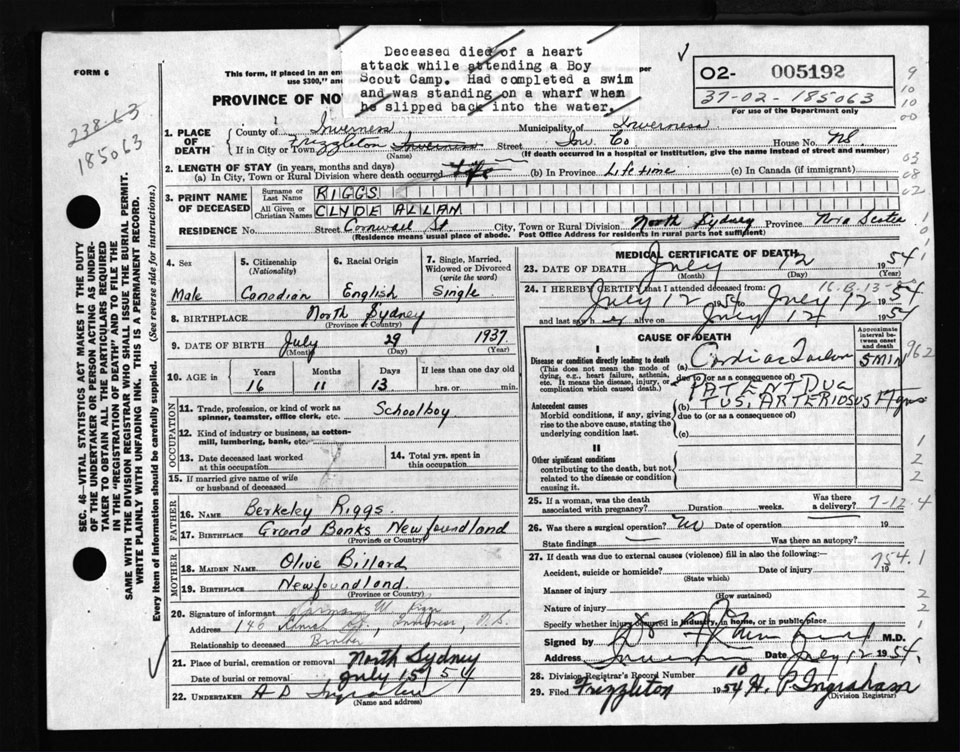 Deceased died of a heart
attack while attending a Boy
Scout Camp. Had completed a swim
and was standing on a wharf when
he slipped back into the water.
FORM 6
This form, if placed in an en
use $300," and
PROVINCE OF NO
02- 005192
37-02-185063
For use of the Department only
238-63
185063
SEC. 46—VITAL STATISTICS ACT MAKES IT THE DUTY
OF THE UNDERTAKER OR PERSON ACTING AS UNDER-
TAKER TO OBTAIN ALL THE PARTICULARS REQUIRED
IN THE "REGISTRATION OF DEATH" AND TO FILE THE
SAME WITH THE DIVISION REGISTRAR WHO SHALL ISSUE THE BURIAL PERMIT.
WRITE PLAINLY WITH UNFADING INK. THIS IS A PERMANENT RECORD.
Every item of information should be carefully supplied. (See reverse side for instructions.)
1. PLACE OF DEATH
County of Inverness Municipality of Inverness
If in City or Town Frizzleton Inverness Street Inv Co House No. NS
(Name) (If death occurred in a hospital or institution, give the name instead of street and number)
2. LENGTH OF STAY (in years, months and days)
(a) In City, Town or Rural Division where death occurred Life (b) In Province Life time (c) In Canada (if immigrant)
3. PRINT NAME OF DECEASED
Surname or Last Name RIGGS
All Given or Christian Names CLYDE ALLAN
RESIDENCE No. Street Cornwall St City, Town or Rural Division North Sydney Province Nova Scotia
(Residence means usual place of abode. Post Office Address for residents in rural parts not sufficient)
4. Sex
Male
5. Citizenship (Nationality)
Canadian
6. Racial Origin
English
7. Single, Married, Widowed or Divorced (write the word)
Single
8. BIRTHPLACE North Sydney
(Province or Country)
9. DATE OF BIRTH July 29 1937
(Month) (Day) (Year)
10. AGE in Years Months Days If less than one day old
16 11 13 hrs. or min.
OCCUPATION
11. Trade, profession, or kind of work as spinner, teamster, office clerk, etc. Schoolboy
12. Kind of industry or business, as cotton-mill, lumbering, bank, etc.
13. Date deceased last worked at this occupation
14. Total yrs. spent in this occupation
15. If married give name of wife or husband of deceased
FATHER
16. NAME Berkeley Riggs
17. BIRTHPLACE Grand Banks Newfoundland
(Province or Country)
MOTHER
18. MAIDEN NAME Olive Billard
19. BIRTHPLACE Newfoundland
(Province or Country)
20. Signature of informant W Riggs
Address 146 St., Inverness, N.S.
Relationship to deceased Brother
21. Place of burial, cremation or removal North Sydney
Date of burial or removal July 15 / 54
22. UNDERTAKER A D Ingraham
(Name and address)
MEDICAL CERTIFICATE OF DEATH
23. DATE OF DEATH July 12 1954
(Month) (Day) (Year)
24. I HEREBY CERTIFY that I attended deceased from:
July 12 1954 to July 12 1954
and last saw h alive on July 12 1954
CAUSE OF DEATH
Approximate interval between onset and death
I
Disease or condition directly leading to death
(This does not mean the mode of dying, e.g., heart failure, asthenia, etc. It means the disease, injury, or complication which caused death.)
(a) Cardiac Failure 5 MIN
due to (or as a consequence of)
Antecedent causes
Morbid conditions, if any, giving rise to the above cause, stating the underlying condition last.
(b) PATENT DUCTUS ARTERIOSUS 17 yrs
due to (or as a consequence of)
(c)
II
Other significant conditions contributing to the death, but not related to the disease or condition causing it.
25. If a woman, was the death associated with pregnancy? Duration weeks. Was there a delivery?
26. Was there a surgical operation? No Date of operation 19
State findings Was there an autopsy?
27. If death was due to external causes (violence) fill in also the following:
Accident, suicide or homicide? Date of injury 19
(State which)
Manner of injury
(How sustained)
Nature of injury
Specify whether injury occurred in industry, in home, or in public place
Signed by M.D.
Address Inverness Date July 12 1954.
28. Division Registrar's Record Number 10
29. Filed Frizzleton 1954 H. P. Ingraham
(Division Registrar)
7-12-4
754.1